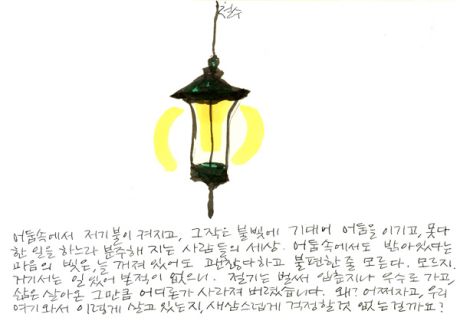 철수
어둠속에서 저기불이 켜지고, 그작은 불빛에 기대어 어둠을 이기고, 못다
한 일을 하느라 분주해 지는 사람들의 세상. 어둠속에서도 밝아있다는
마음의 빛은, 늘 꺼져 있어도 괜찮다하고 불편한 줄 모른다. 모르지.
거기서는 일 있어 본적이 없으니. 절기는 벌써 입춘지나 우수로 가고,
삶은 살아온 그만큼 어디론가 사라져 버렸습니다. 왜? 어쩌자고, 우리
여기와서 이렇게 살고 있는지, 새삼스럽게 걱정할것 없는걸까요?